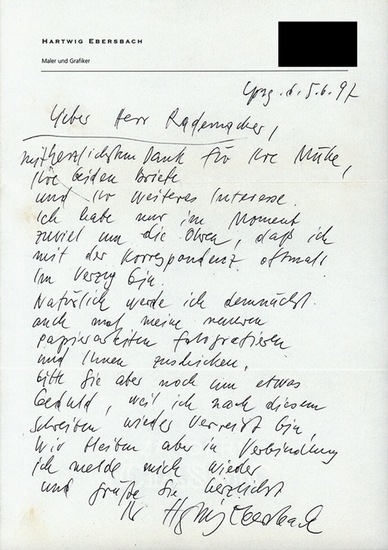 HARTWIG EBERSBACH
Maler und Grafiker
Lpzg. d. 5.6.97
Lieber Herr Rademacher,
mit herzlichstem Dank für Ihre Mühe,
Ihre beiden Briefe
und Ihr weiteres Interesse.
Ich habe nur im Moment
zuviel um die Ohren, daß ich
mit der Korrespondenz oftmals
im Verzug bin.
Natürlich werde ich demnächst
auch mal meine neueren
Papierarbeiten fotografieren
und Ihnen zuschicken,
bitte Sie aber noch um etwas
Geduld, weil ich nach diesem
Schreiben wieder verreist bin,
Wir bleiben aber in Verbindung
ich melde mich wieder
und grüße Sie herzlichst
Ihr Hartwig Ebersbach